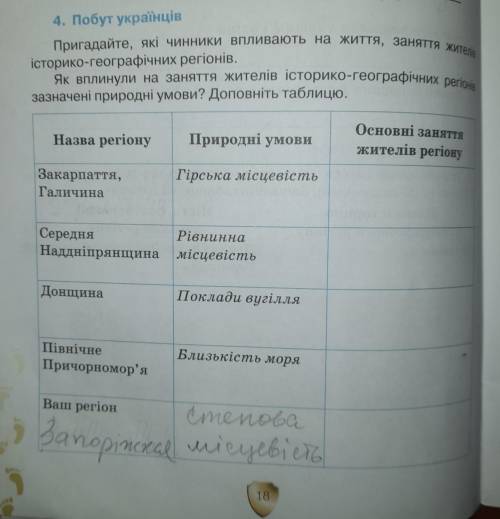 4. Побут українців
Пригадайте, які чинники впливають на життя, заняття жителів
історико-географічних регіонів.
Як вплинули на заняття жителів історико-географічних регіонів
зазначені природні умови? Доповніть таблицю.
Назва регіону
Природні умови
Основні заняття
жителів регіону
Закарпаття,
Галичина
Гірська місцевість
Середня
Наддніпрянщина
Рівнинна
місцевість
Донщина
Поклади вугілля
Північне
Причорномор'я
Близькість моря
Ваш регіон
Запоріжская
степова
місцевість
18